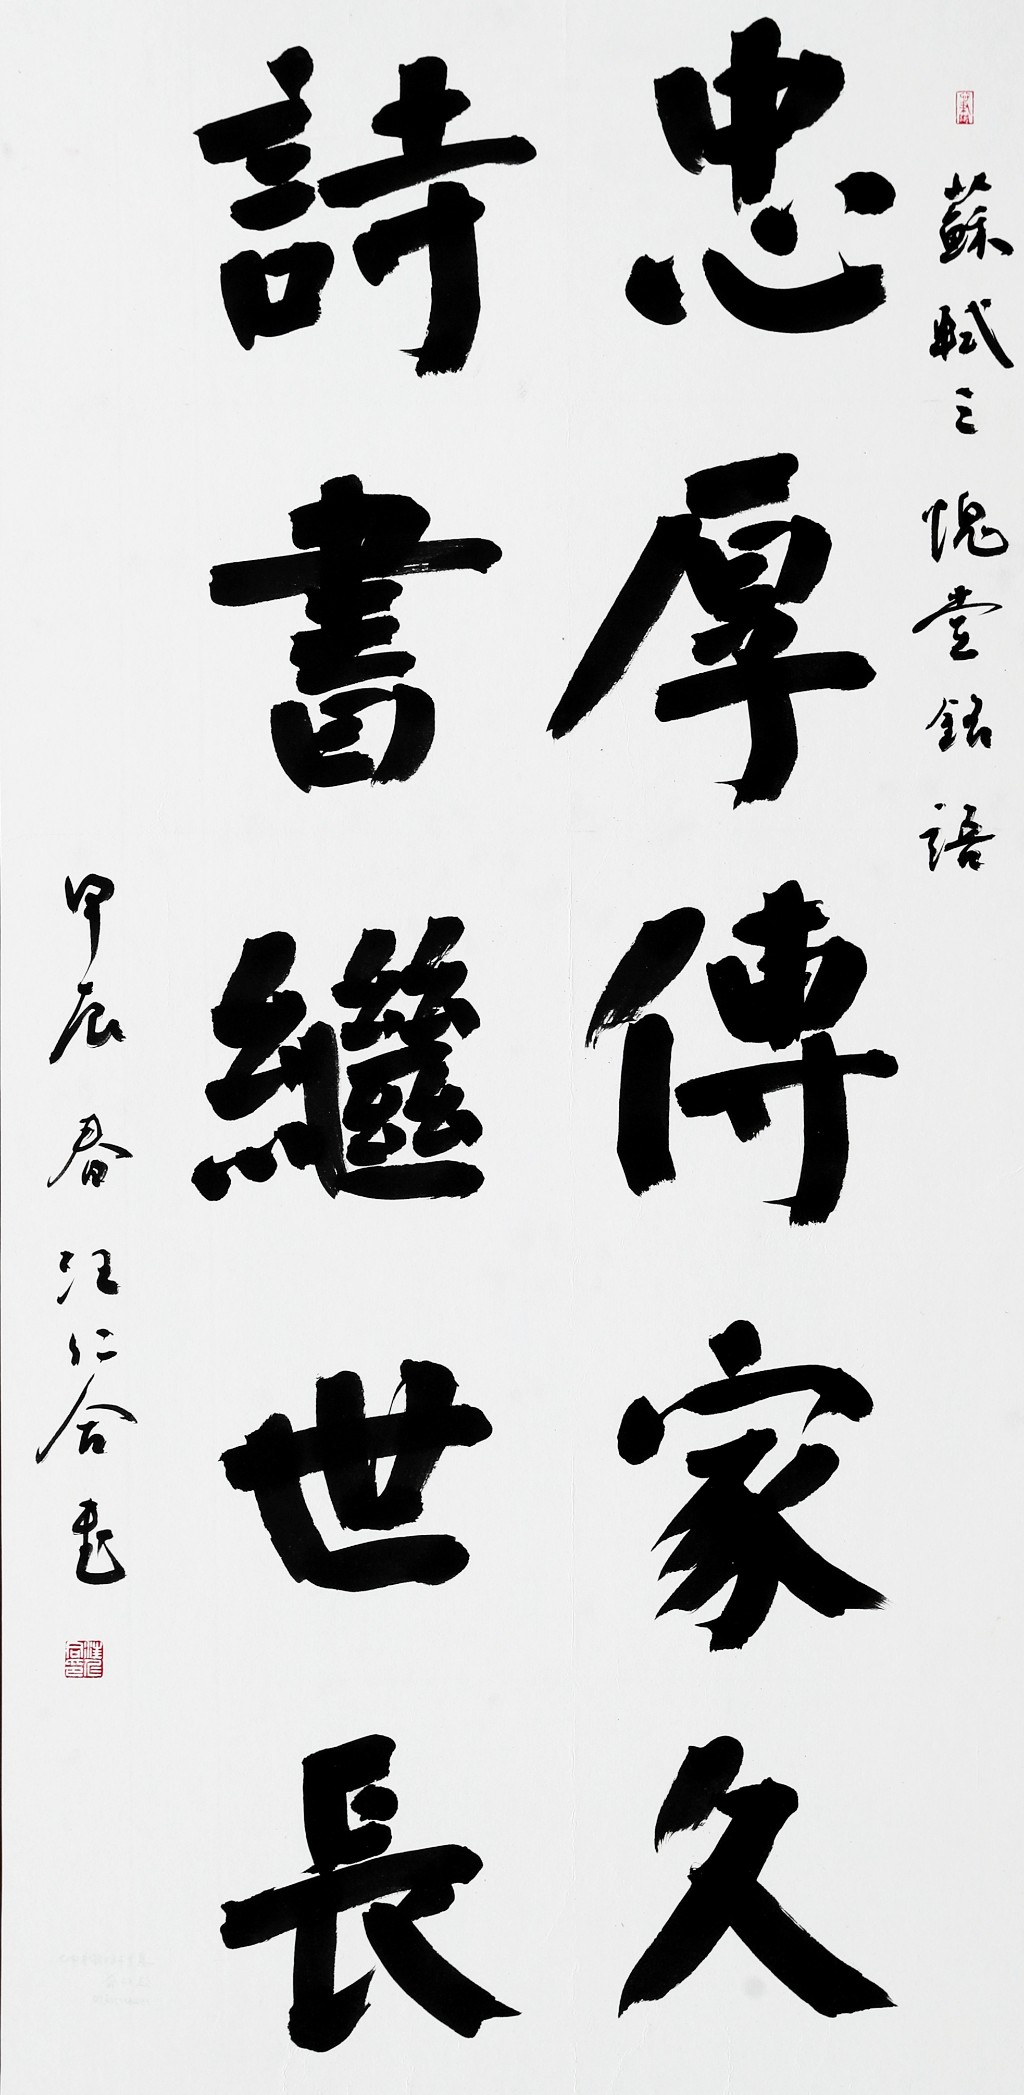 蘇軾三愧堂銘語
忠厚傳家久
詩書繼世長
甲辰春汪仁合書